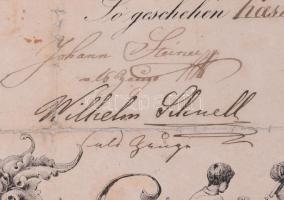 So geschehen
Johann Steiner
als Zeuge
Wilhelm Schnell
als Zeuge